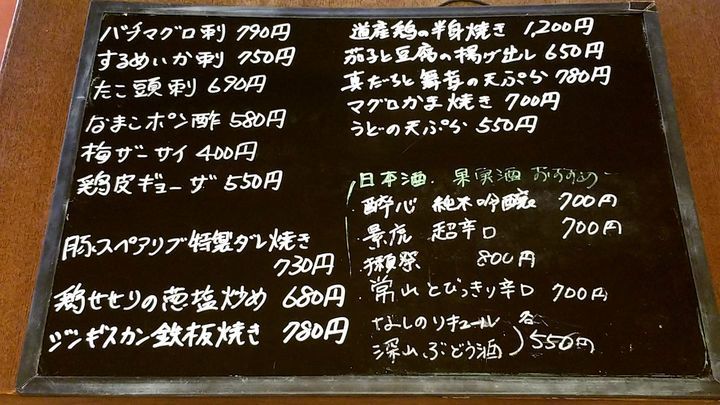 バチマグロ刺 790円
するめいか刺 750円
たこ頭刺 690円
なまこポン酢 580円
梅ザーサイ 400円
鶏皮ギョーザ 550円
豚スペアリブ特製ダレ焼き
730円
鶏せせりの葱塩炒め 680円
ジンギスカン鉄板焼き 780円
道産鶏の半身焼き 1,200円
茄子と豆腐の揚げ出し 650円
真だちと舞茸の天ぷら 780円
マグロかま焼き 700円
うどの天ぷら 550円
日本酒・果実酒 おすすめ
酔心 純米吟醸 700円
景虎 超辛口 700円
獺祭 800円
常山 とびっきり辛口 700円
なしのリキュール 各
深山ぶどう酒 550円